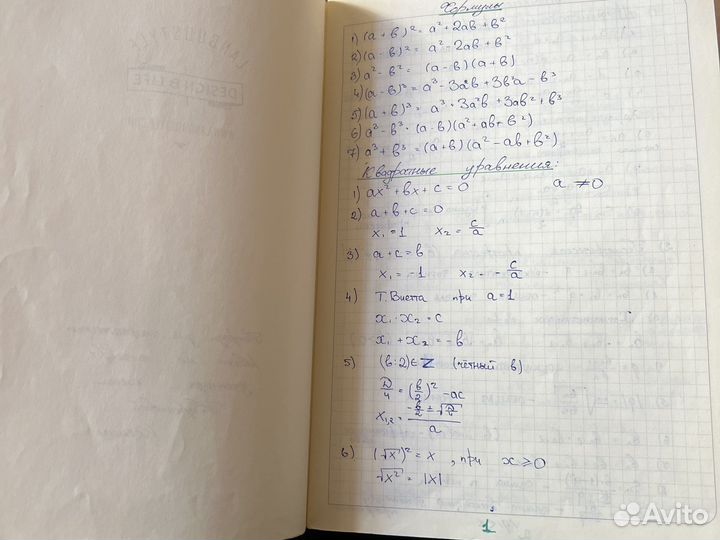 Формулы
1) (a + b)² = a² + 2ab + b²
2) (a - b)² = a² - 2ab + b²
3) a² - b² = (a - b)(a + b)
4) (a - b)³ = a³ - 3a²b + 3b²a - b³
5) (a + b)³ = a³ + 3a²b + 3ab² + b³
6) a³ - b³ = (a - b)(a² + ab + b²)
7) a³ + b³ = (a + b)(a² - ab + b²)
Квадратные уравнения:
1) ax² + bx + c = 0 a ≠ 0
2) a + b + c = 0
x₁ = 1 x₂ = c/a
3) a + c = b
x₁ = -1 x₂ = - c/a
4) Т. Виета при a = 1
x₁ · x₂ = c
x₁ + x₂ = -b
5) (b : 2) ∈ Z (чётный b)
D/4 = (b/2)² - ac
x₁,₂ = (-b/2 ± √(D/4))/a
6) (√x)² = x, при x ≥ 0
√x² = |x|
1
Avito